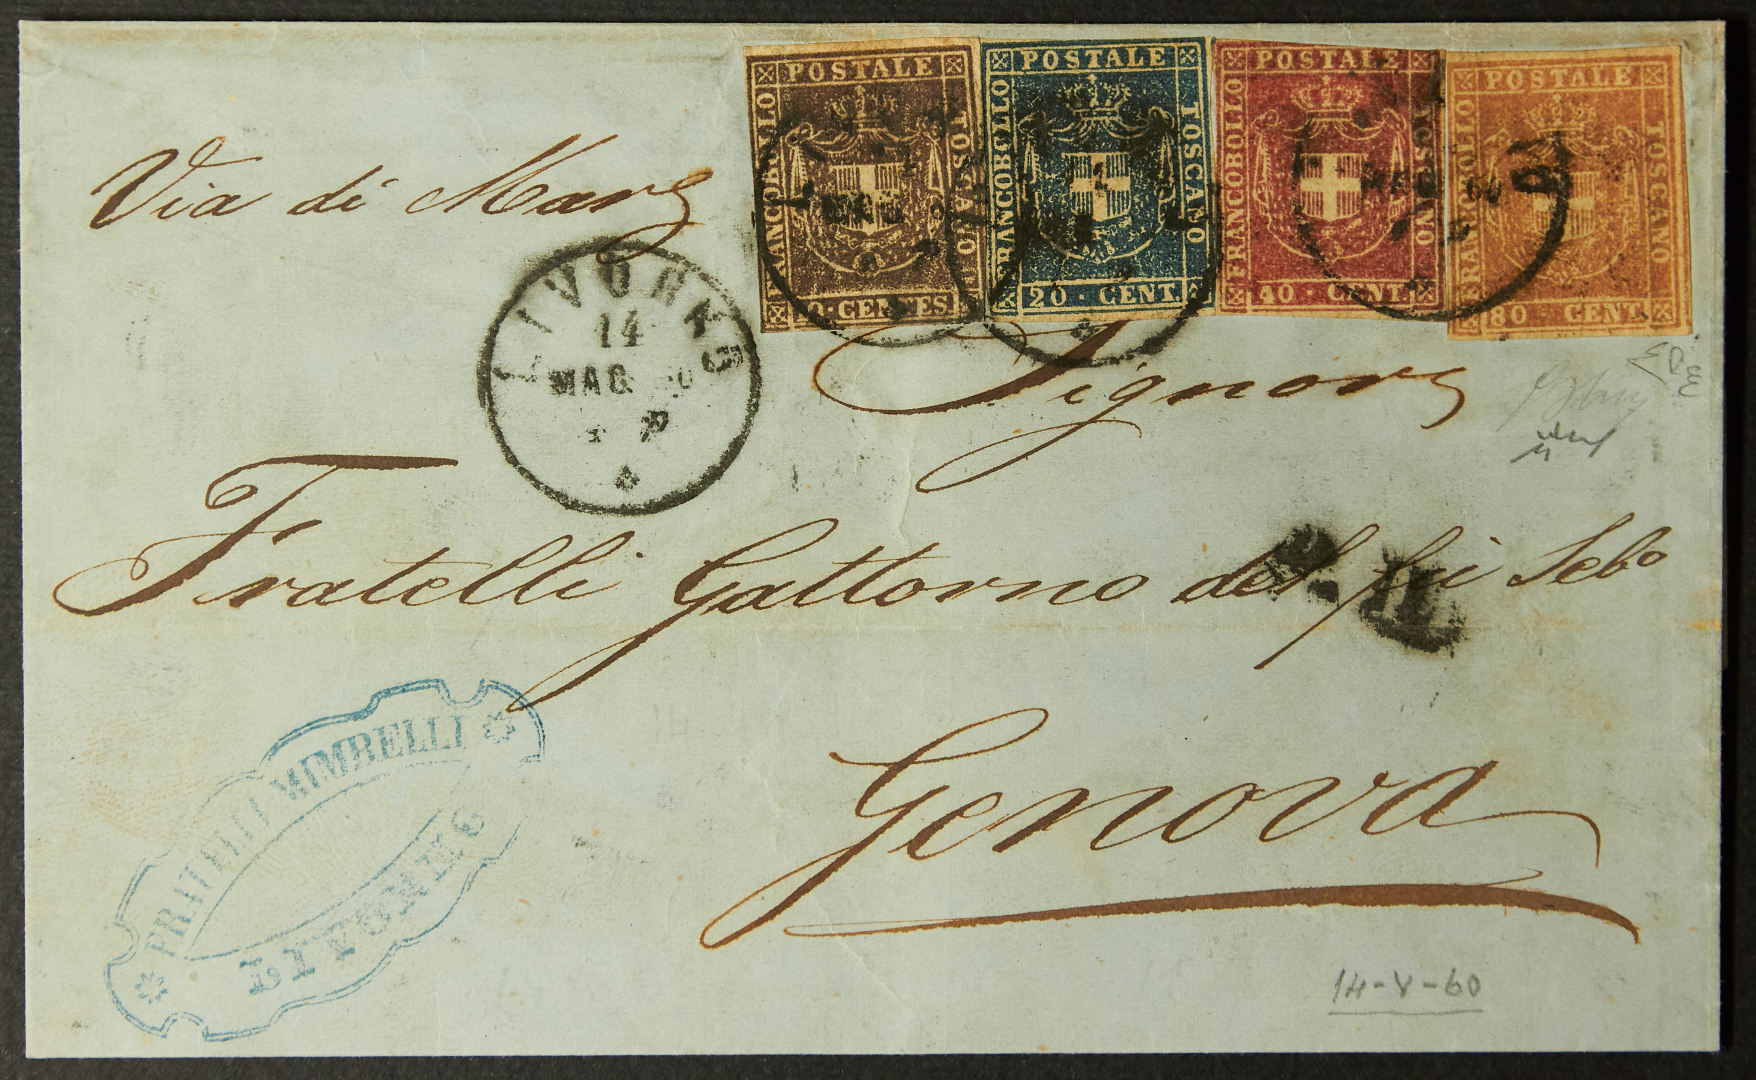 POSTALE
FRANCOBOLLO
TOSCANO
10 · CENTES
POSTALE
FRANCOBOLLO
TOSCANO
20 · CENT.
POSTALE
FRANCOBOLLO
TOSCANO
40 · CENT.
POSTALE
FRANCOBOLLO
TOSCANO
80 CENT.
MAG
MAG
Via di Mare
LIVORNO
14
MAG. 60
Signori
Fratelli Gattorno del fu Sebo
P. D.
FRATELLI MIMBELLI
LIVORNO
Genova
14-V-60